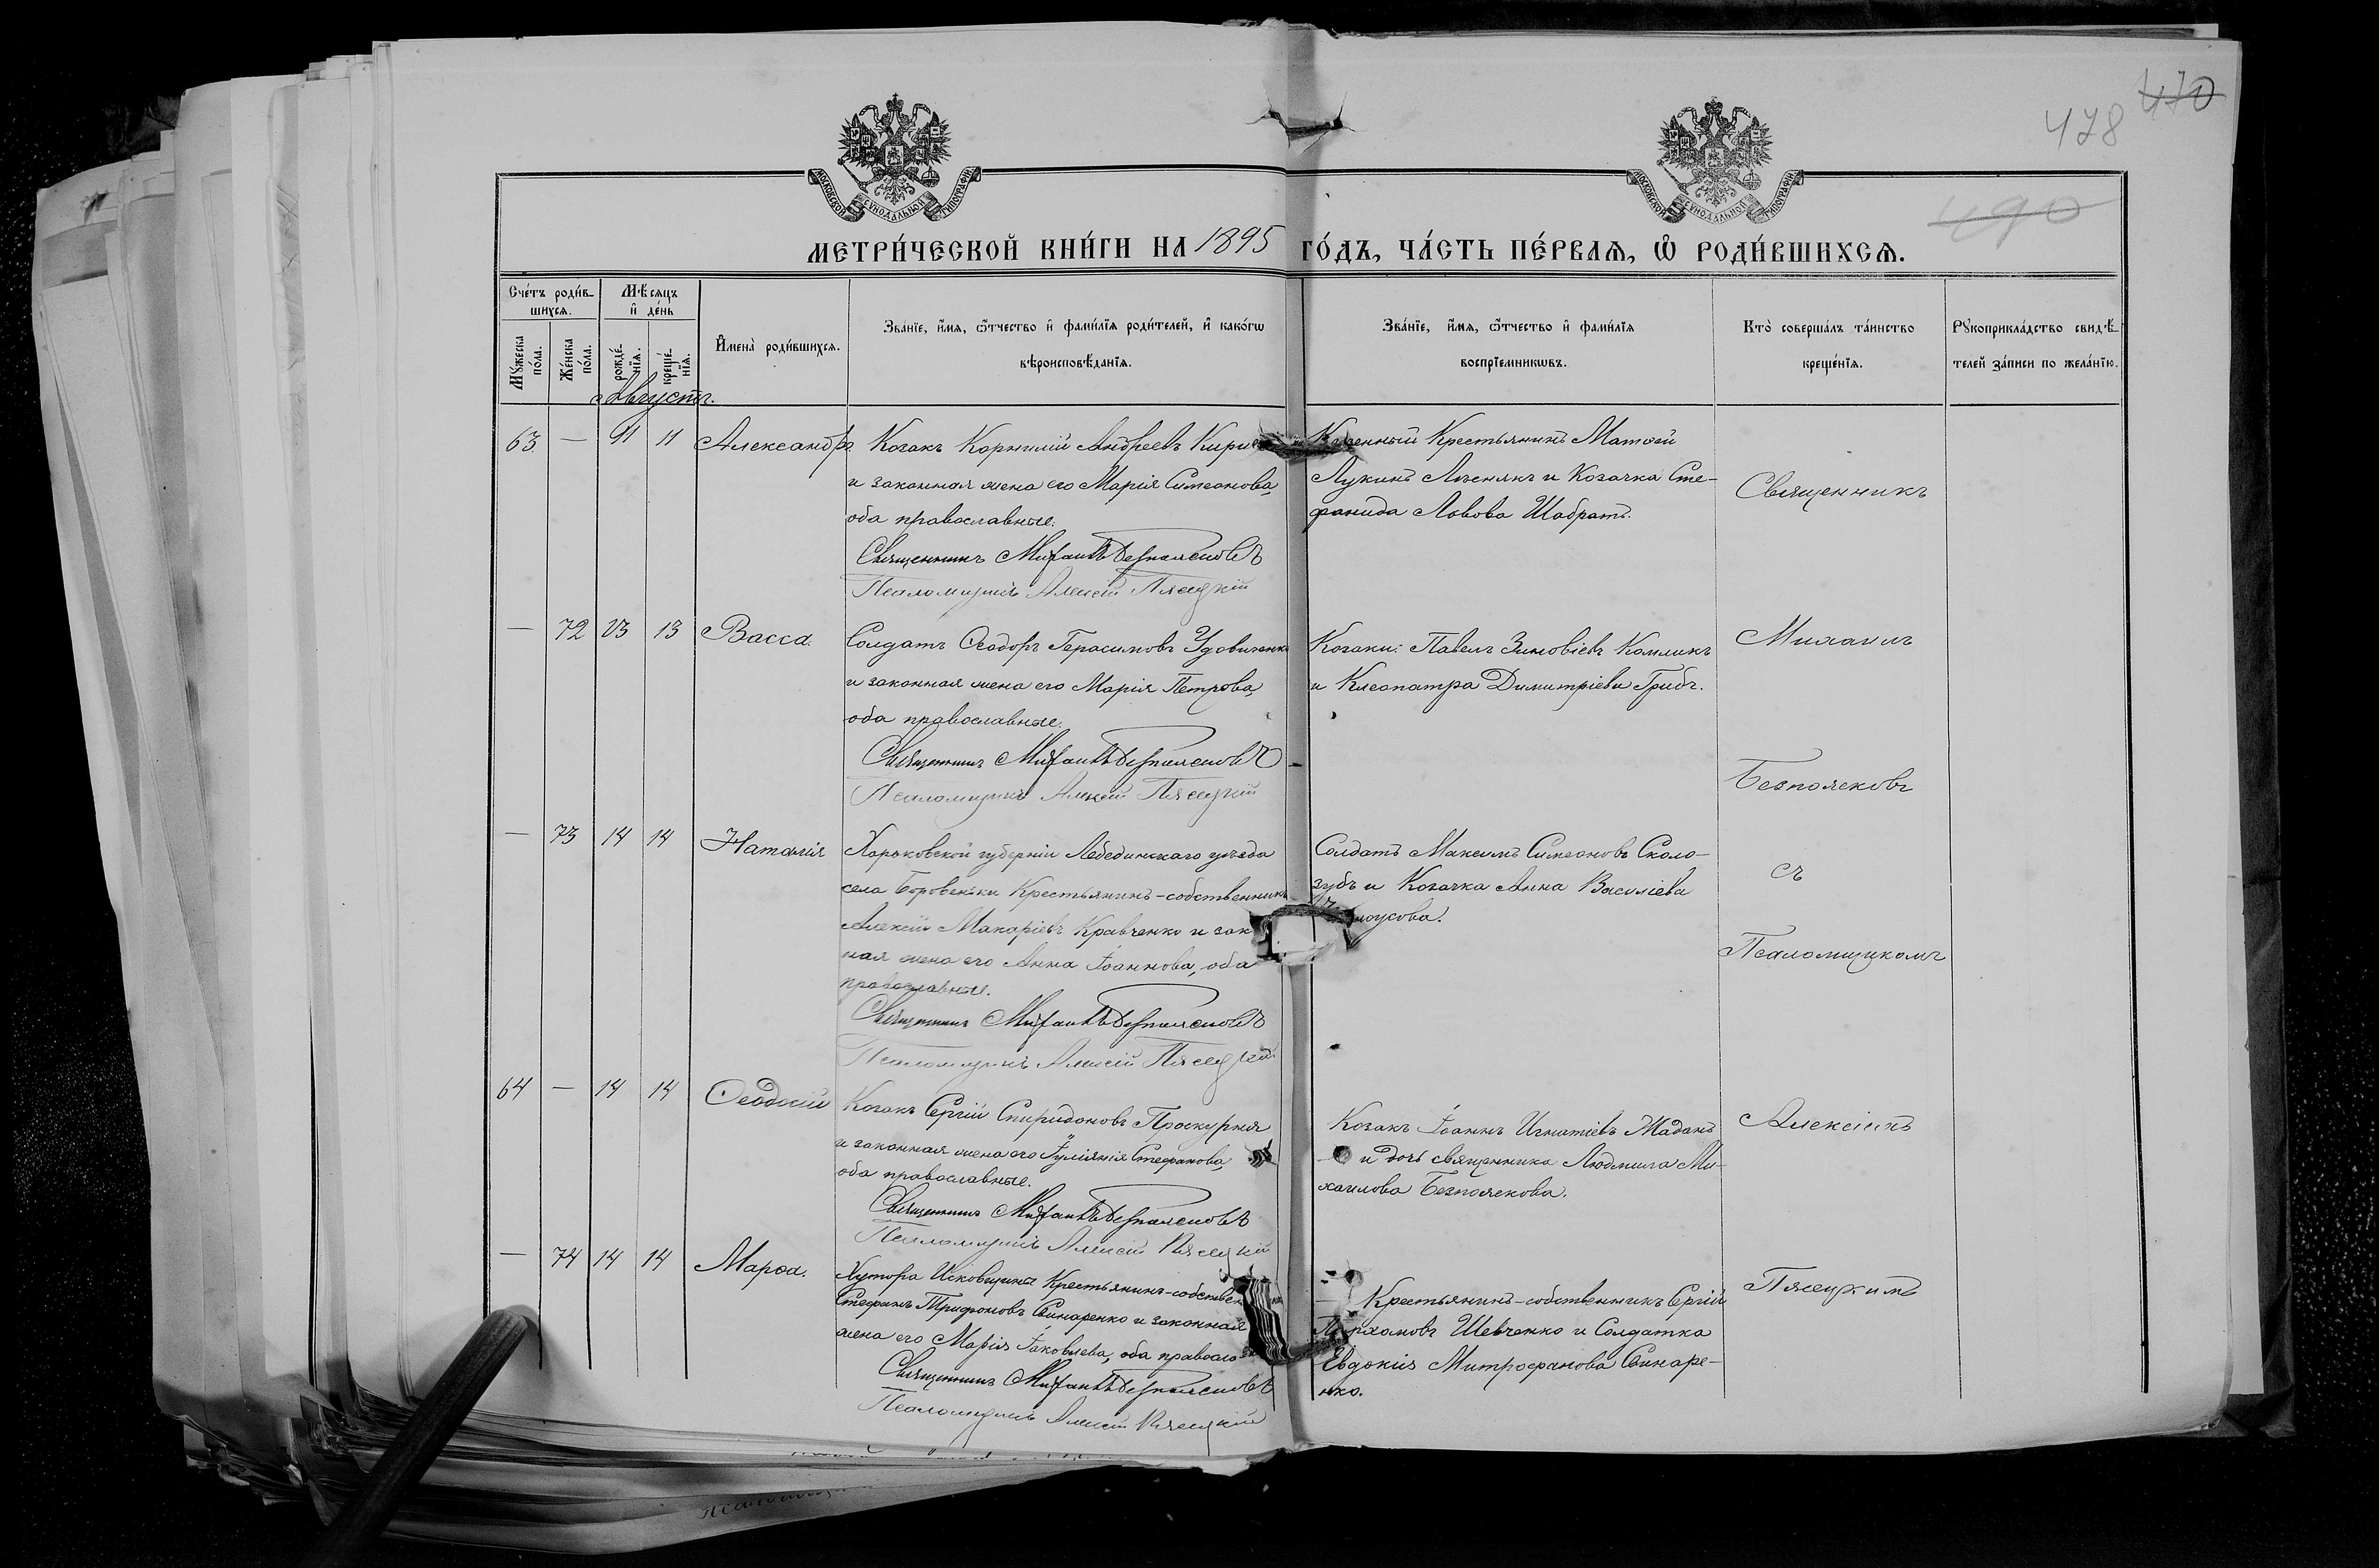 470
478
490
МОСКОВСКОЙ СѴНОДАЛЬНОЙ ТИПОГРАФІИ
МОСКОВСКОЙ СѴНОДАЛЬНОЙ ТИПОГРАФІИ
МЕТРИ́ЧЕСКОЙ КНИ́ГИ НА 1895 ГО́ДЪ, ЧА́СТЬ ПЕ́РВАѦ, Ѡ҆ РОДИ́ВШИХСѦ.
Сче́тъ роди́в-
шихсѧ.
Мѣ́сѧцъ
и҆ де́нь
Мꙋ́жеска по́ла.
Же́нска по́ла.
рожде́-нїѧ.
креще́-нїѧ.
И҆мена̀ роди́вшихсѧ.
Зва́нїе, и҆́мѧ, ѻ҆́тчество и҆ фами́лїѧ роди́телей, и҆ како́гѡ
вѣроисповѣ́данїѧ.
Зва́нїе, и҆́мѧ, ѻ҆́тчество и҆ фами́лїѧ
воспрїе́мникѡвъ.
Кто̀ соверша́лъ та́инство
креще́нїѧ.
Рꙋкоприкла́дство свидѣ́-
телей за́писи по жела́нїю.
Августъ.
63 — 11 11 Александръ
Козакъ Корнилій Андреевъ
и законная жена его Марія Симеонова,
оба православные.
Священникъ Михаилъ Безполсковъ
Псаломщикъ Алексій Пясецкій
Крестьянинъ Матѳей
Лукинъ и Козачка Сте-
фанида Львова Шабратъ.
Священникъ
— 72 13 13 Васса.
Солдатъ Ѳеодоръ Герасимовъ Удовиченко
и законная жена его Марія Петрова,
оба православные.
Священникъ Михаилъ Безполсковъ
Псаломщикъ Алексій Пясецкій
Козаки: Павелъ Зиновіевъ Комликъ
и Клеопатра Димитріева Грибъ.
Михаилъ
Безполсковъ
— 73 14 14 Наталія
Харьковской губерніи Лебединскаго уѣзда
села Боровеньки Крестьянинъ-собственникъ
Алексій Макаріевъ Кравченко и закон
ная жена его Анна Іоаннова, оба
православные.
Священникъ Михаилъ Безполсковъ
Псаломщикъ Алексій Пясецкій
Солдатъ Максимъ Симеоновъ Сколо-
зубъ и Козачка Анна Василіева
съ
Псаломщикомъ
64 — 14 14 Ѳеодосій
Козакъ Сергій Спиридоновъ Проскурня
и законная жена его Іуліянія Стефанова,
оба православные.
Священникъ Михаилъ Безполсковъ
Псаломщикъ Алексій Пясецкій
Козакъ Іоаннъ Игнатіевъ Маданъ
и дочь священника Людмила Ми-
хаилова Безполскова.
Алексіемъ
— 74 14 14 Марѳа.
Хутора Исковщины Крестьянинъ-собствен
Стефанъ Трифоновъ Свинаренко и законная
жена его Марія Іаковлева, оба правосл
Священникъ Михаилъ Безполсковъ
Псаломщикъ Алексій Пясецкій
Крестьянинъ-собственникъ Сергій
Пархомовъ Шевченко и Солдатка
Евдокія Митрофанова Свинаре-
нко.
Пясецкимъ